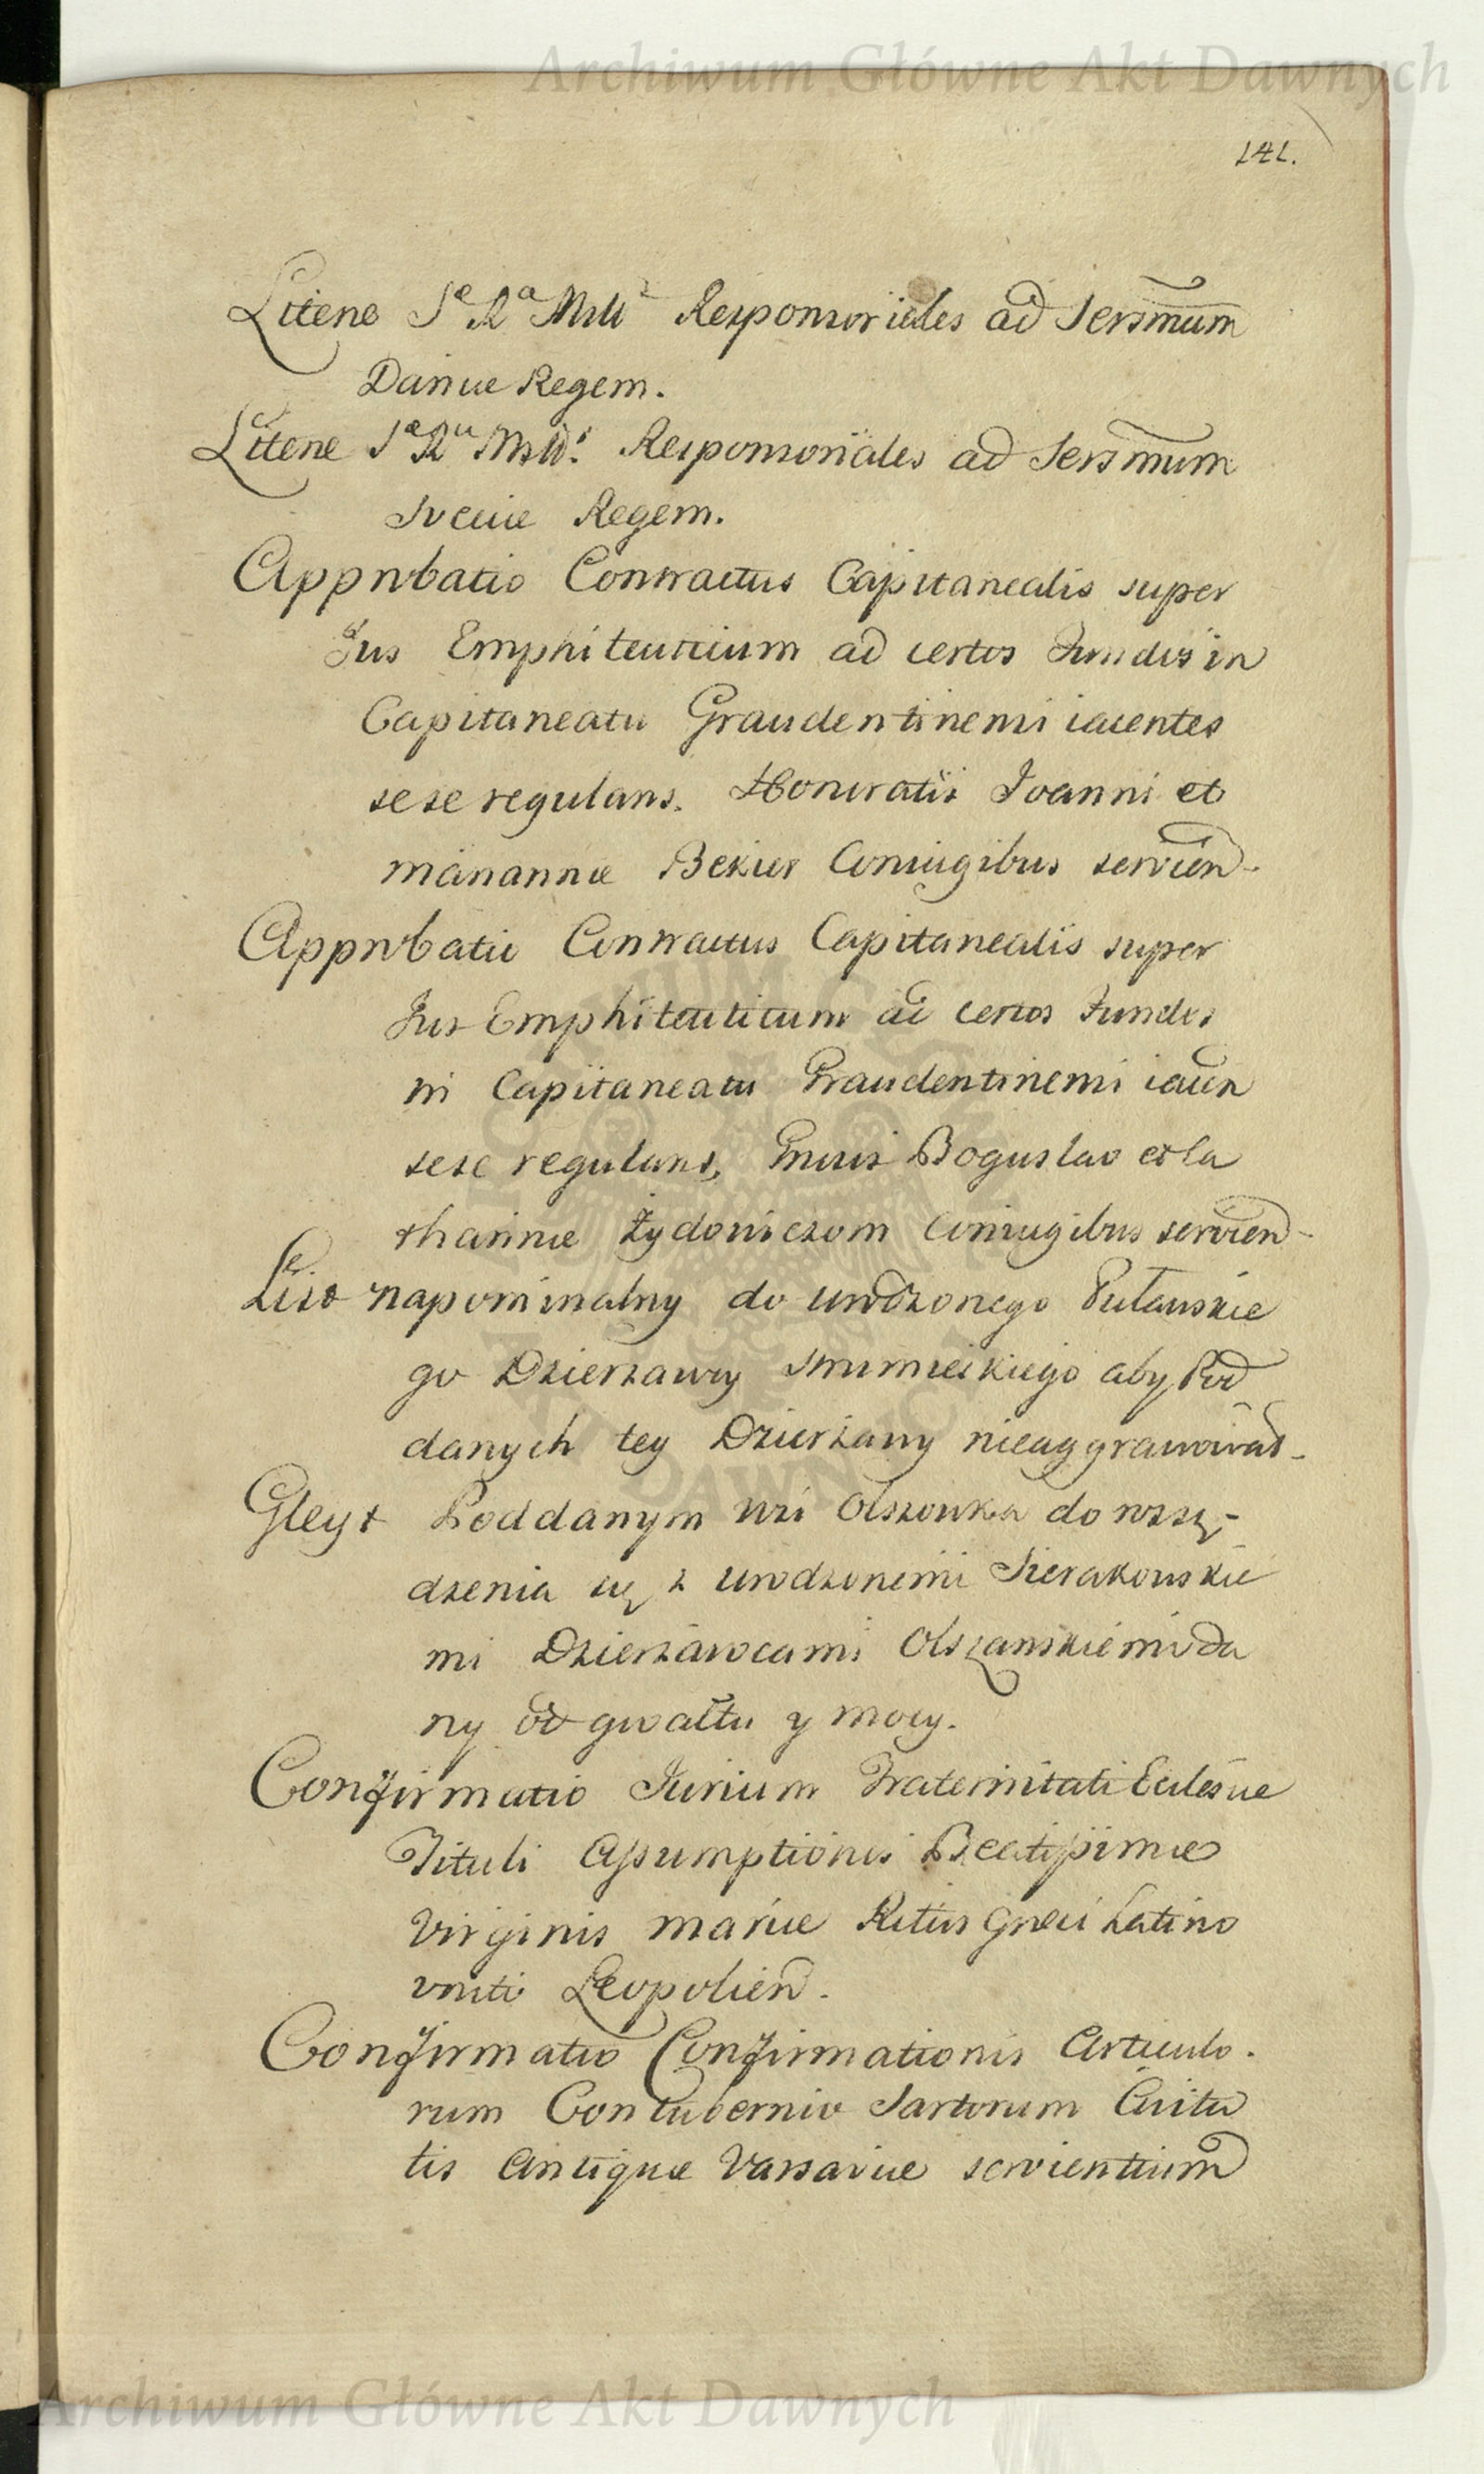 Archiwum Główne Akt Dawnych
141.
Literae Sae Rae Mttis Responsoriales ad Sersmum
Daniae Regem.
Literae Sae Rae Mttis Responsoriales ad Sersmum
Sveciae Regem.
Approbatio Contractus Capitanealis super
Jus Emphiteuticum ad certos Fundos in
Capitaneatu Graudentinensi iacentes
sese regulans. Honoratis Joanni et
Mariannae Bekier Coniugibus servien
Approbatio Contractus Capitanealis super
Jus Emphiteuticum ad certos Fundos
in Capitaneatu Graudentinensi iacen
sese regulans, Gnosis Boguslao et Ca
tharinae Zydowiczom Coniugibus servien
List napominalny do urodzonego Pułauskie
go Dzierzawcy Strumieskiego aby Pod
danych tey Dzierżawy nieaggrawował
Gleyt Poddanym wsi Olszowka do rozsą-
dzenia się z urodzonemi Sierakowskie
mi Dzierzawcami Olszanskiemi da
ny od gwałtu y mocy.
Confirmatio Jurium Fraternitati Eclesiae
Tituli Assumptionis Beatissimae
Virginis Mariae Ritus Graeci Latino
uniti Leopolien.
Confirmatio Confirmationis Articulo.
rum Contubernio Sartorum Civita
tis Antiquae Varsaviae servientium
Archiwum Główne Akt Dawnych